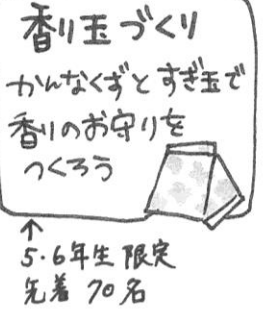 香り玉づくり
かんなくずとすぎ玉で
香りのお守りを
つくろう
↑
5・6年生限定
先着70名